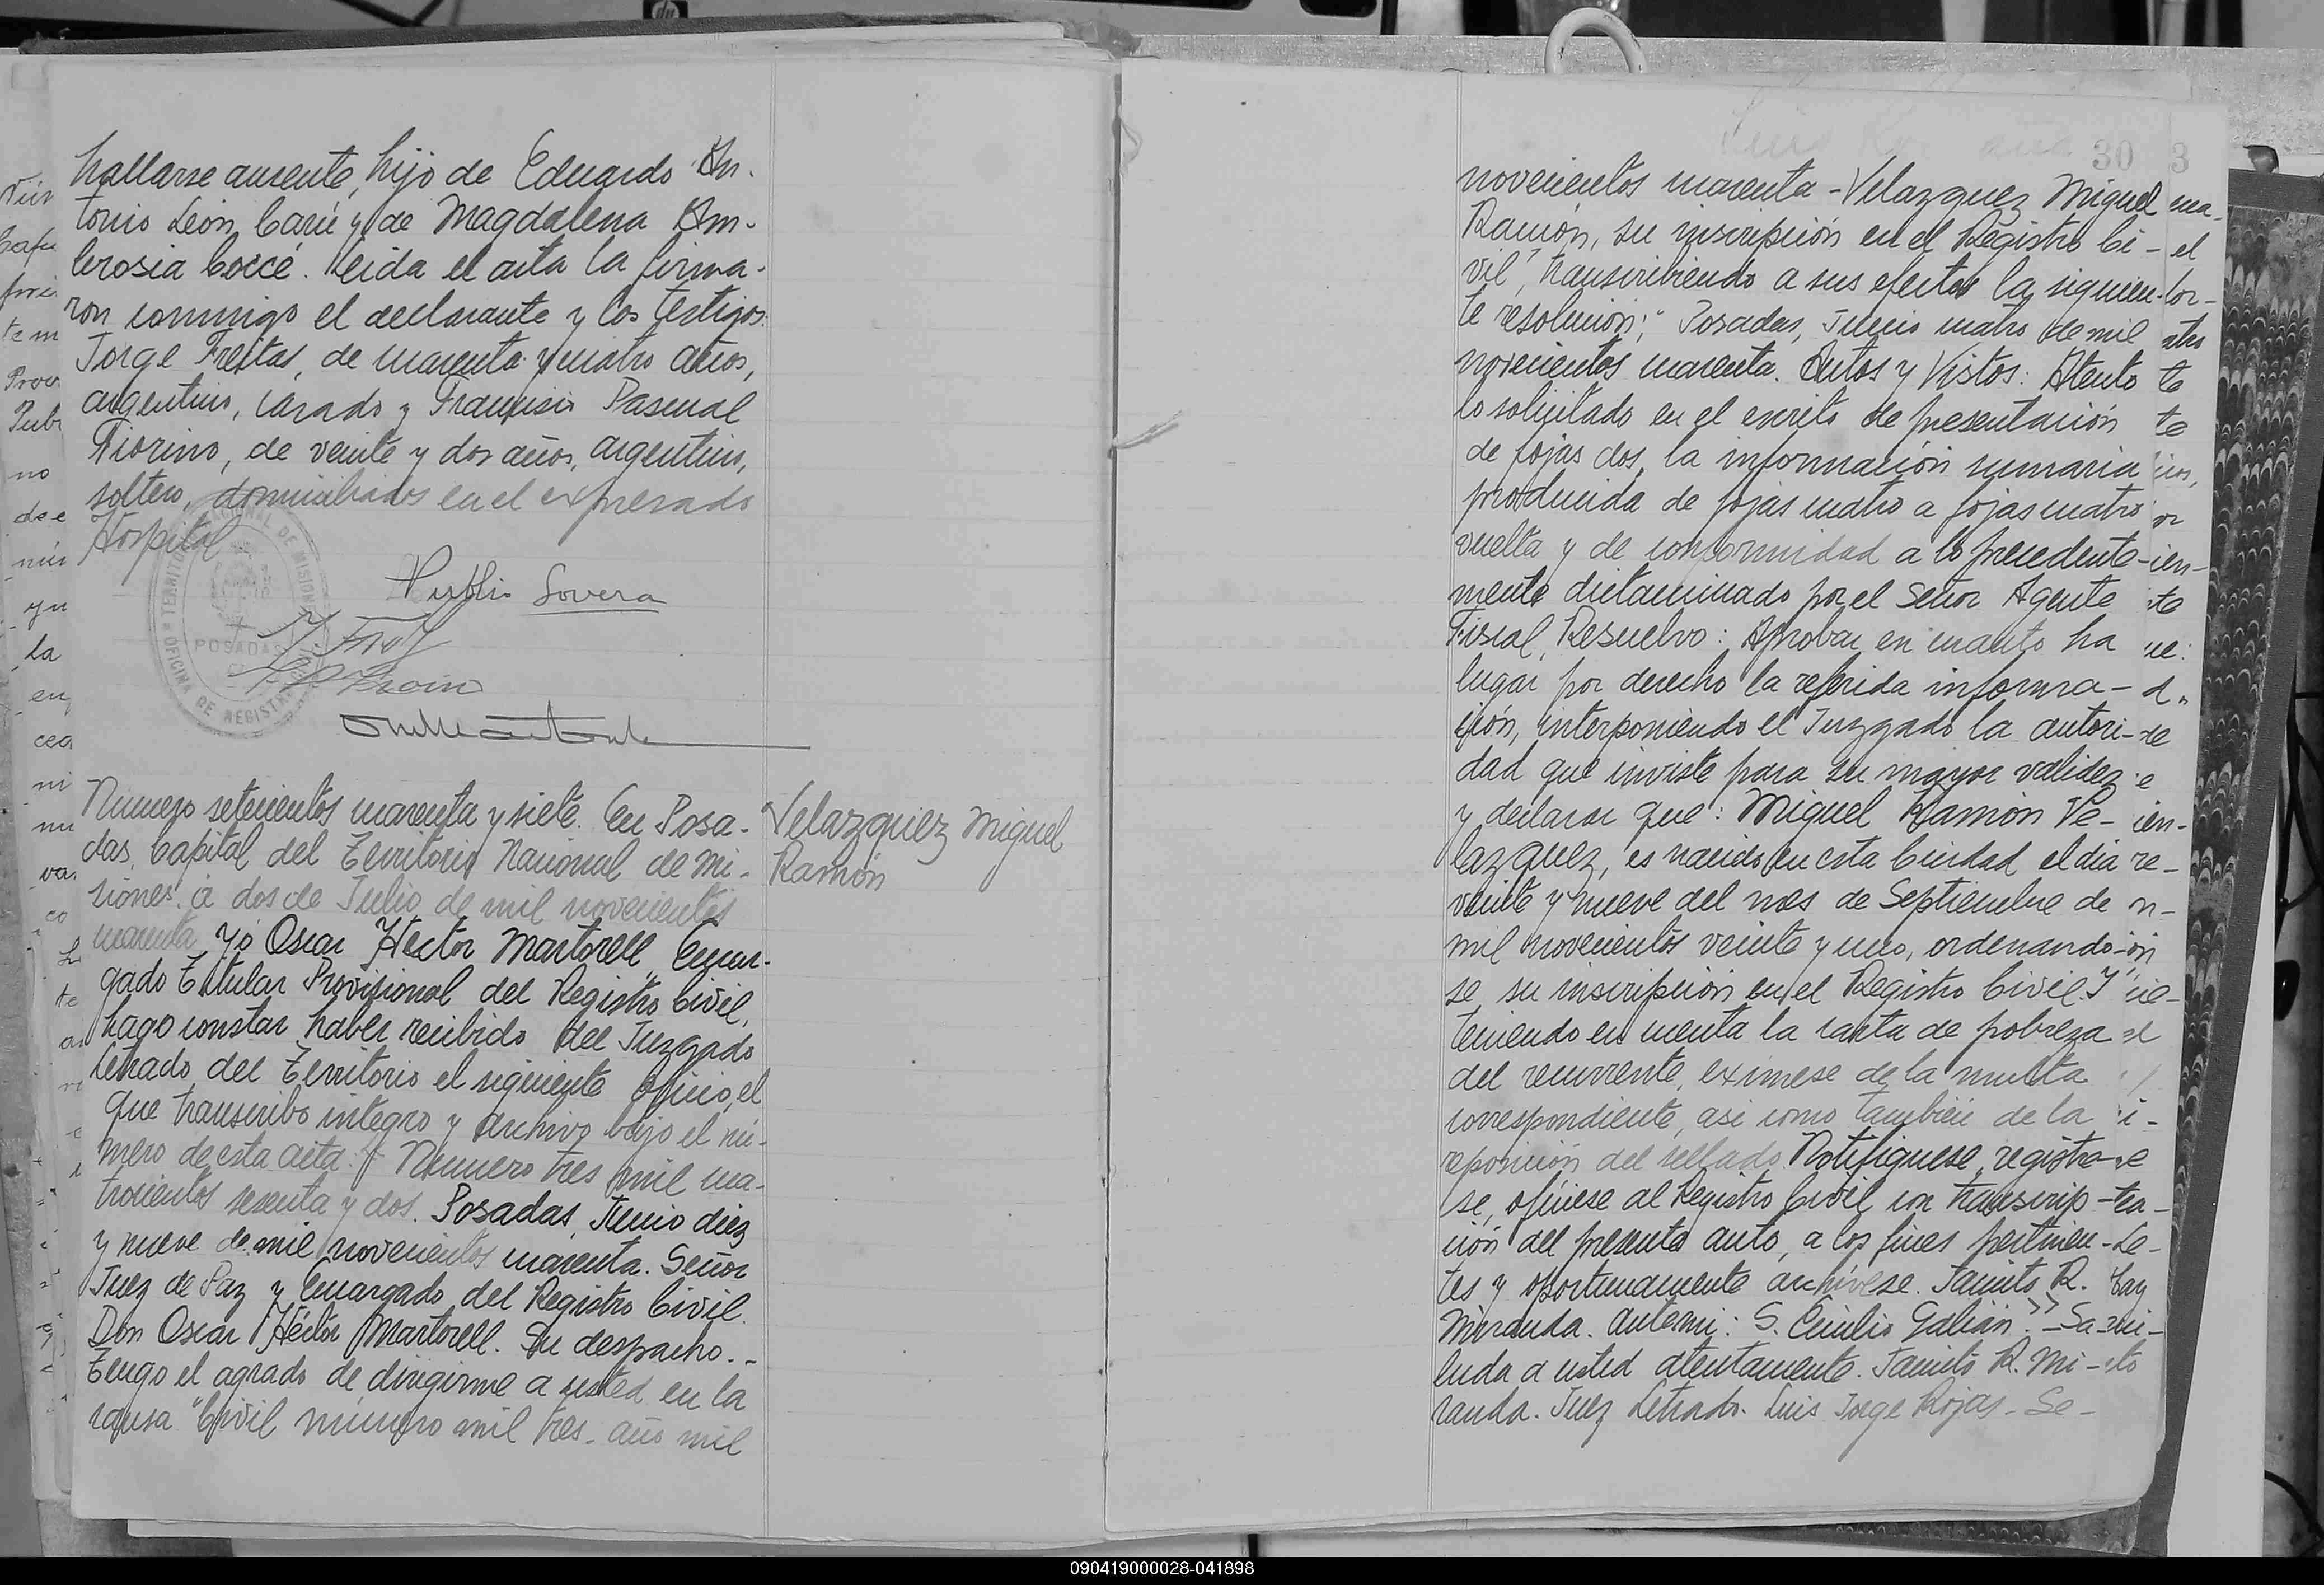 hallarse ausente, hijo de Eduardo An-
tonio León Carú y de Magdalena Am-
brosia Coccé. Leida el acta la firma-
ron conmigo el declarante y los testigos:
Jorge Freitas, de cuarenta y cuatro años,
argentino, casado y Francisco Pascual
Fiorino, de veinte y dos años, argentino,
soltero, domiciliados en el expresado
Hospital
Publio Lovera
POSADAS
OFICINA DE REGISTRO
Numero setecientos cuarenta y siete. En Posa-
das, Capital del Territorio Nacional de Mi-
siones, a dos de Julio de mil novecientos
cuarenta, yo Oscar Héctor Martorell, Encar-
gado Titular Provisional del Registro Civil,
hago constar haber recibido del Juzgado
Letrado del Territorio el siguiente oficio, el
que transcribo integro y archivo bajo el nú-
mero de esta acta: Número tres mil cua-
trocientos sesenta y dos. Posadas, Junio diez
y nueve de mil novecientos cuarenta. Señor
Juez de Paz y Encargado del Registro Civil.
Don Oscar Héctor Martorell. Su despacho.-
Tengo el agrado de dirigirme a usted en la
causa "Civil número mil tres - año mil
Velazquez Miguel
Ramón
30
3
novecientos cuarenta - Velazquez Miguel
Ramón, su inscripción en el Registro Ci-
vil", transcribiendo a sus efectos la siguien-
te resolución: "Posadas, Junio cuatro de mil
novecientos cuarenta. Autos y Vistos: Atento
lo solicitado en el escrito de presentación
de fojas dos, la información sumaria
producida de fojas cuatro a fojas cuatro
vuelta y de conformidad a lo precedente-
mente dictaminado por el Señor Agente
Fiscal, Resuelvo: Aprobar en cuanto ha
lugar por derecho la referida informa-
ción, interponiendo el Juzgado la autori-
dad que inviste para su mayor validez
y declarar que: Miguel Ramón Ve-
lazquez, es nacido en esta Ciudad el dia
veinte y nueve del mes de Septiembre de
mil novecientos veinte y uno, ordenando-
se su inscripción en el Registro Civil. Y
teniendo en cuenta la carta de pobreza
del recurrente, exímese de la multa
correspondiente, asi como también de la
reposición del sellado. Notifiquese, registre-
se, ofíciese al Registro Civil con transcrip-
ción del presente auto, a los fines pertinen-
tes y oportunamente archívese. Jacinto R.
Miranda. Ante mi: S. Emilio Galián." - Sa-
luda a usted atentamente. Jacinto R. Mi-
randa. Juez Letrado. Luis Jorge Rojas - Se-
090419000028-041898